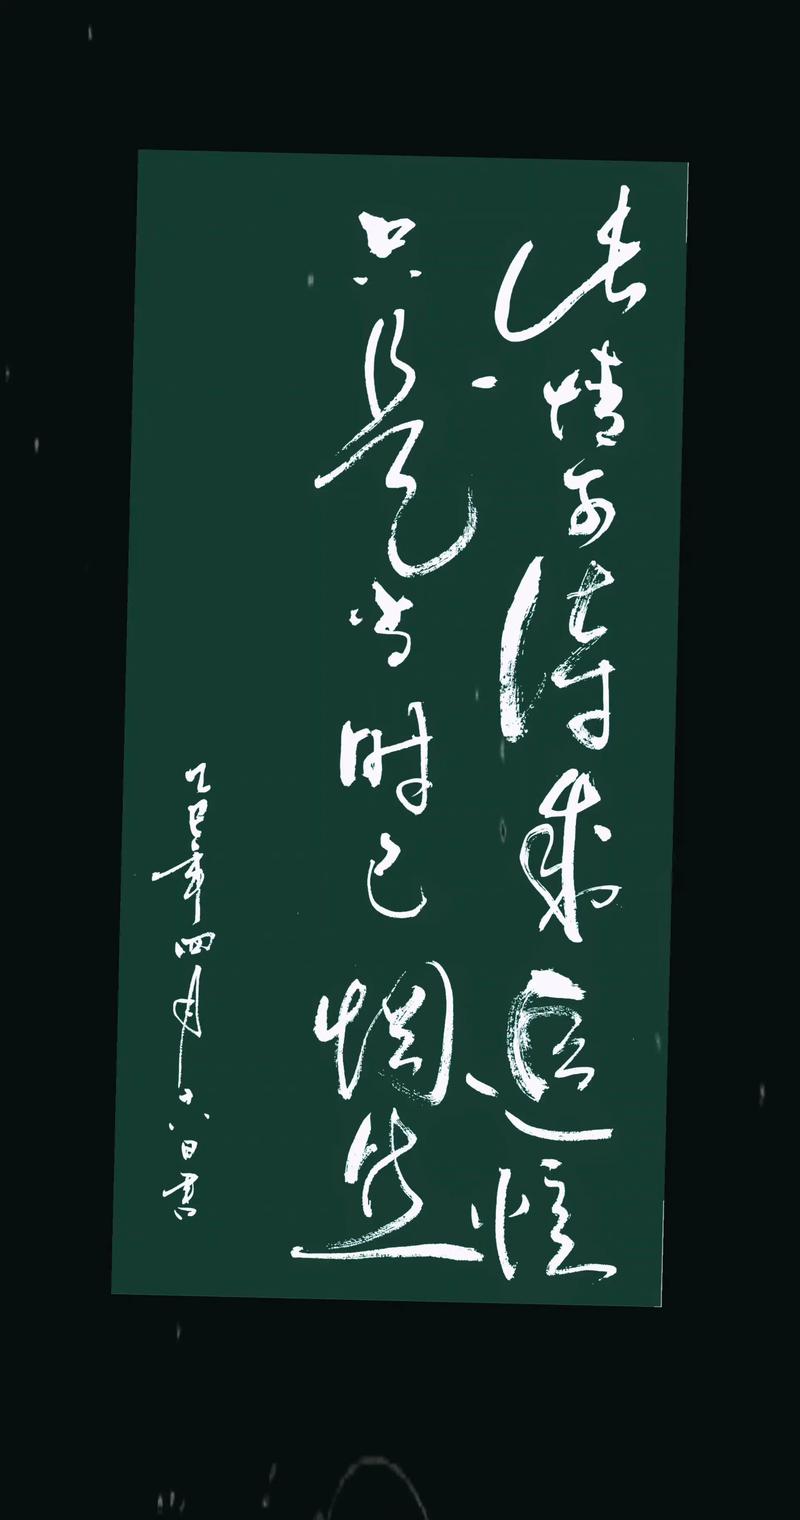 此情可待成追憶
只是当时已惘然
乙巳年四月十八日書